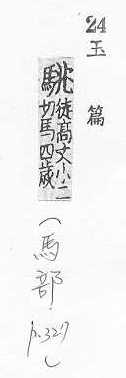 24 玉篇
駣 徒髙丈小二
切馬四歲
(馬部.p.327)